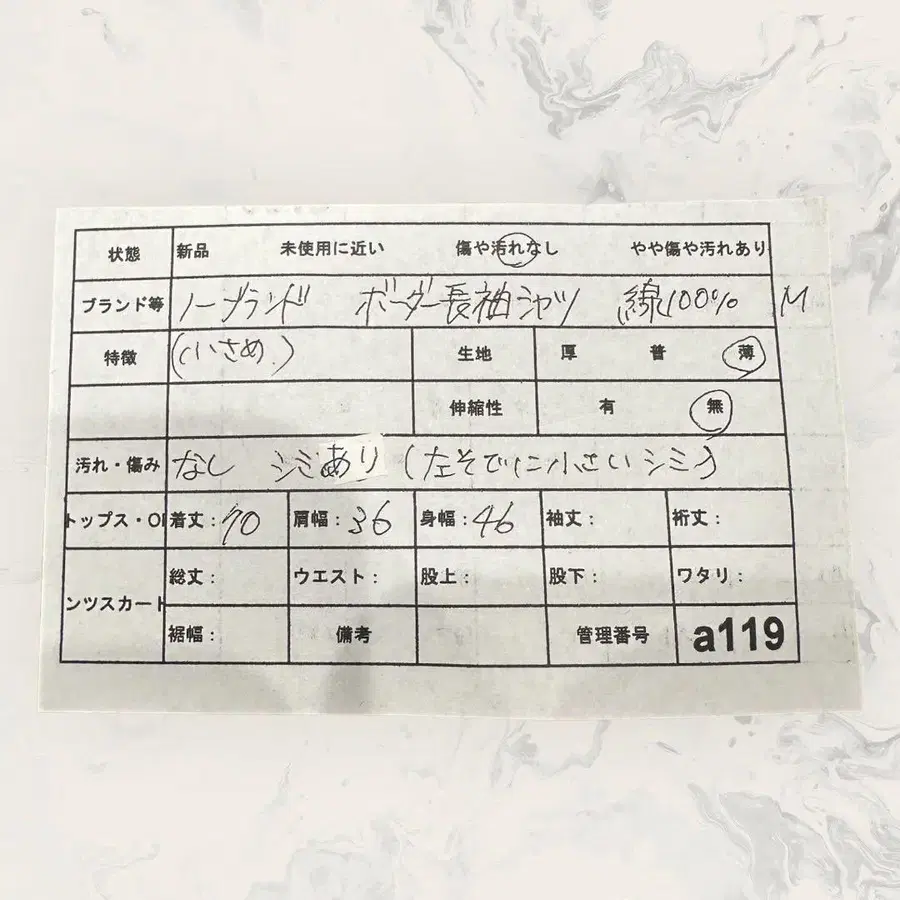 状態 新品 未使用に近い 傷や汚れなし やや傷や汚れあり
ブランド等 ノーブランド ボーダー長袖シャツ 綿100% M
特徴 (小さめ) 生地 厚 普 薄
伸縮性 有 無
汚れ・傷み なし シミあり (左そでに小さいシミ)
トップス・OP 着丈:70 肩幅:36 身幅:46 袖丈: 裄丈:
総丈: ウエスト: 股上: 股下: ワタリ:
ンツスカート
裾幅: 備考 管理番号 a119